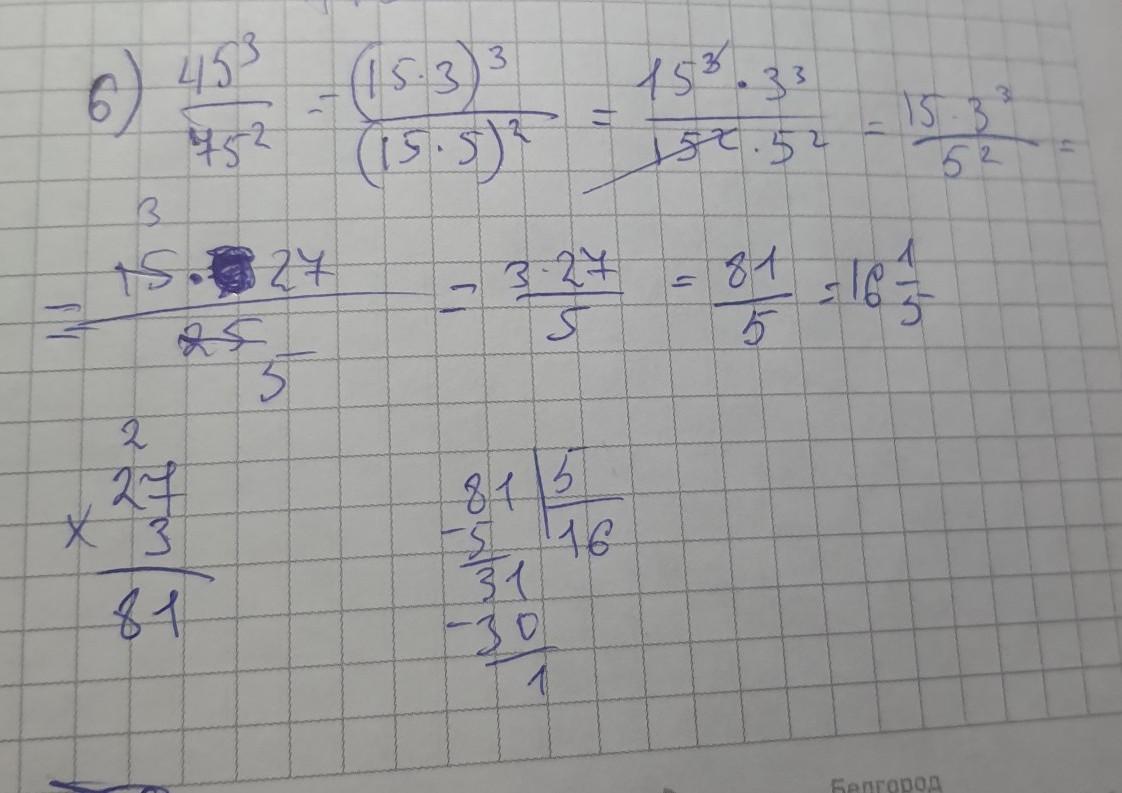 6) 45³/75² = (15·3)³/(15·5)² = 15³·3³/15²·5² = 15·3³/5² =
3
= 15·27/25 = 3·27/5 = 81/5 = 16 1/5
5
2
27 81 | 5
× 3 -5 16
81 31
-30
1
Белгород